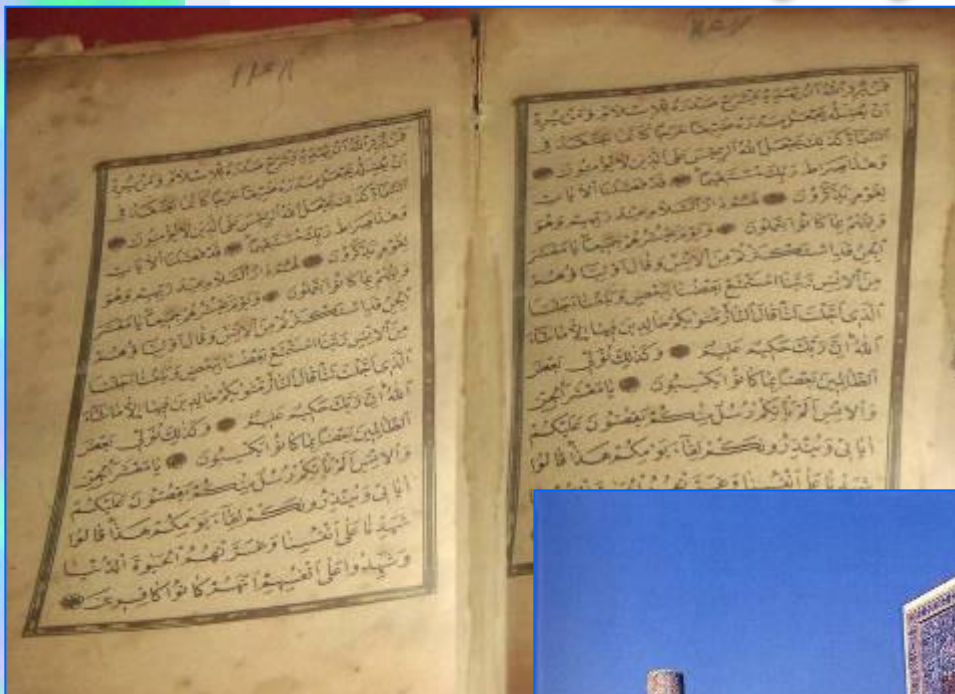 فَمَنْ يُرِدِ اللهُ أَنْ يَهْدِيَهُ يَشْرَحْ صَدْرَهُ لِلْاِسْلَامِ وَمَنْ يُرِدْ
اَنْ يُضِلَّهُ يَجْعَلْ صَدْرَهُ ضَيِّقًا حَرَجًا كَاَنَّمَا يَصَّعَّدُ فِي
السَّمَاءِ كَذٰلِكَ يَجْعَلُ اللهُ الرِّجْسَ عَلَى الَّذِينَ لَا يُؤْمِنُونَ
وَهٰذَا صِرَاطُ رَبِّكَ مُسْتَقِيمًا قَدْ فَصَّلْنَا الْاٰيَاتِ
لِقَوْمٍ يَذَّكَّرُونَ لَهُمْ دَارُ السَّلَامِ عِنْدَ رَبِّهِمْ وَهُوَ
وَلِيُّهُمْ بِمَا كَانُوا يَعْمَلُونَ وَيَوْمَ يَحْشُرُهُمْ جَمِيعًا يَا مَعْشَرَ
الْجِنِّ قَدِ اسْتَكْثَرْتُمْ مِنَ الْاِنْسِ وَقَالَ اَوْلِيَاؤُهُمْ
مِنَ الْاِنْسِ رَبَّنَا اسْتَمْتَعَ بَعْضُنَا بِبَعْضٍ وَبَلَغْنَا اَجَلَنَا
الَّذِي اَجَّلْتَ لَنَا قَالَ النَّارُ مَثْوٰيكُمْ خَالِدِينَ فِيهَا اِلَّا مَا شَاءَ
اللهُ اِنَّ رَبَّكَ حَكِيمٌ عَلِيمٌ وَكَذٰلِكَ نُوَلِّي بَعْضَ
الظَّالِمِينَ بَعْضًا بِمَا كَانُوا يَكْسِبُونَ يَا مَعْشَرَ الْجِنِّ
وَالْاِنْسِ اَلَمْ يَأْتِكُمْ رُسُلٌ مِنْكُمْ يَقُصُّونَ عَلَيْكُمْ
اٰيَاتِي وَيُنْذِرُونَكُمْ لِقَاءَ يَوْمِكُمْ هٰذَا قَالُوا
شَهِدْنَا عَلَى اَنْفُسِنَا
فَمَنْ يُرِدِ اللهُ أَنْ يَهْدِيَهُ يَشْرَحْ صَدْرَهُ لِلْاِسْلَامِ وَمَنْ يُرِدْ
اَنْ يُضِلَّهُ يَجْعَلْ صَدْرَهُ ضَيِّقًا حَرَجًا كَاَنَّمَا يَصَّعَّدُ فِي
السَّمَاءِ كَذٰلِكَ يَجْعَلُ اللهُ الرِّجْسَ عَلَى الَّذِينَ لَا يُؤْمِنُونَ
وَهٰذَا صِرَاطُ رَبِّكَ مُسْتَقِيمًا قَدْ فَصَّلْنَا الْاٰيَاتِ
لِقَوْمٍ يَذَّكَّرُونَ لَهُمْ دَارُ السَّلَامِ عِنْدَ رَبِّهِمْ وَهُوَ
وَلِيُّهُمْ بِمَا كَانُوا يَعْمَلُونَ وَيَوْمَ يَحْشُرُهُمْ جَمِيعًا يَا مَعْشَرَ
الْجِنِّ قَدِ اسْتَكْثَرْتُمْ مِنَ الْاِنْسِ وَقَالَ اَوْلِيَاؤُهُمْ
مِنَ الْاِنْسِ رَبَّنَا اسْتَمْتَعَ بَعْضُنَا بِبَعْضٍ وَبَلَغْنَا اَجَلَنَا
الَّذِي اَجَّلْتَ لَنَا قَالَ النَّارُ مَثْوٰيكُمْ خَالِدِينَ فِيهَا اِلَّا مَا شَاءَ
اللهُ اِنَّ رَبَّكَ حَكِيمٌ عَلِيمٌ وَكَذٰلِكَ نُوَلِّي بَعْضَ
الظَّالِمِينَ بَعْضًا بِمَا كَانُوا يَكْسِبُونَ يَا مَعْشَرَ الْجِنِّ
وَالْاِنْسِ اَلَمْ يَأْتِكُمْ رُسُلٌ مِنْكُمْ يَقُصُّونَ عَلَيْكُمْ
اٰيَاتِي وَيُنْذِرُونَكُمْ لِقَاءَ يَوْمِكُمْ هٰذَا قَالُوا
شَهِدْنَا عَلَى اَنْفُسِنَا وَغَرَّتْهُمُ الْحَيٰوةُ الدُّنْيَا
وَشَهِدُوا عَلَى اَنْفُسِهِمْ اَنَّهُمْ كَانُوا كَافِرِينَ